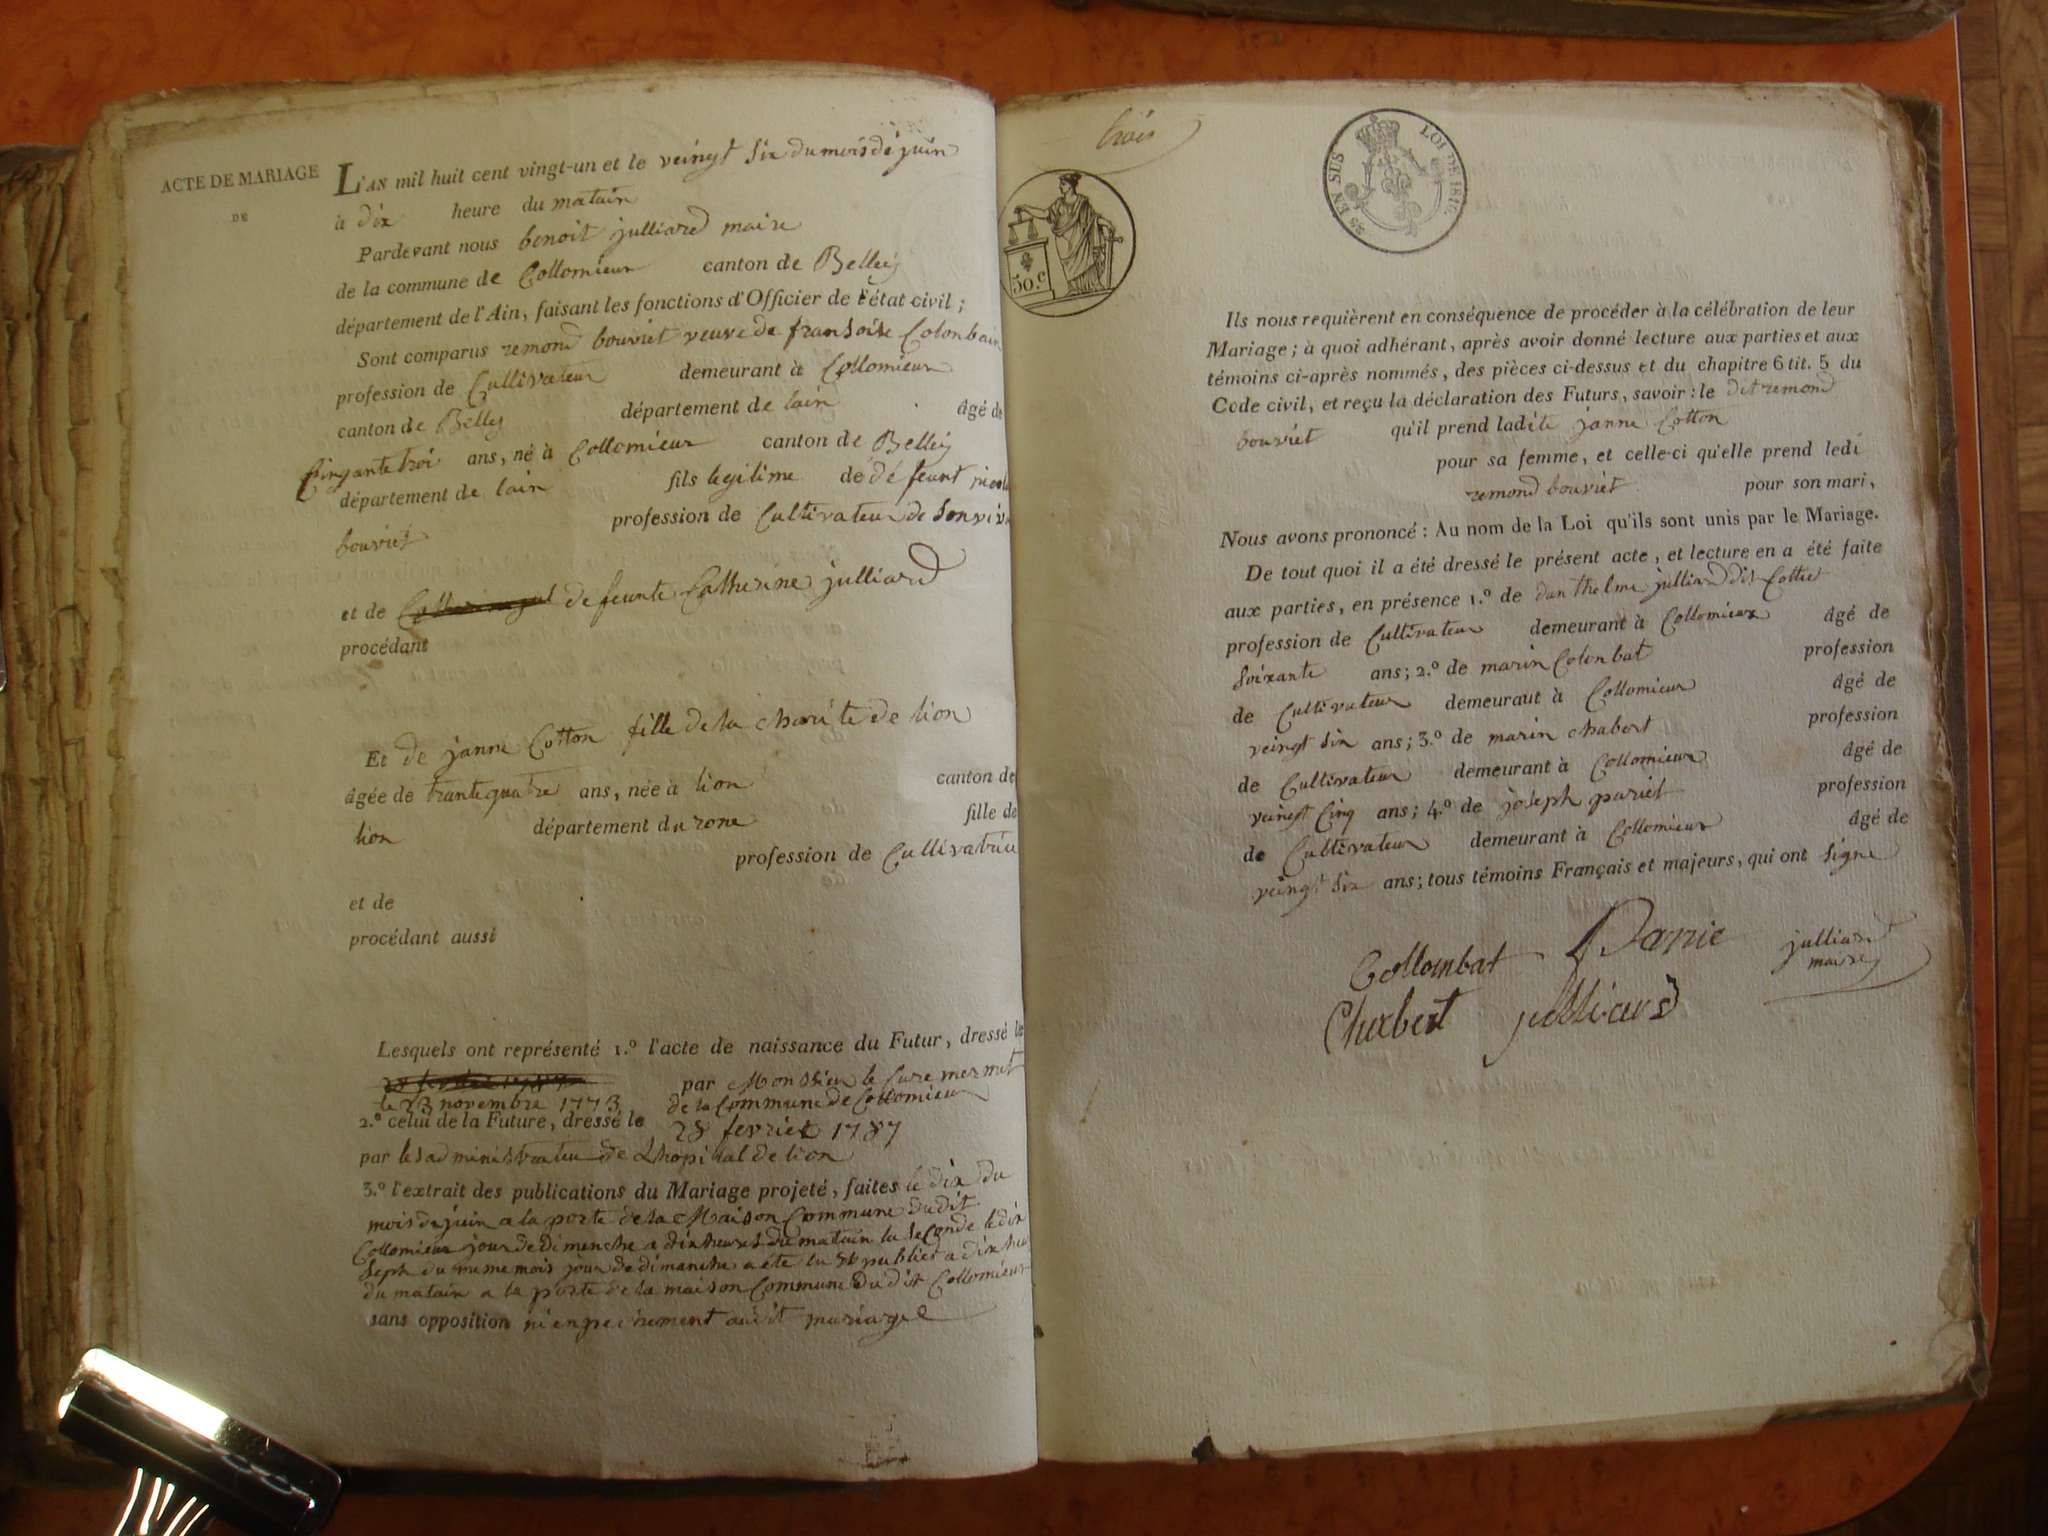 ACTE DE MARIAGE
DE
L'AN mil huit cent vingt-un et le veingt six du mois de juin
à dix heure du matain
Pardevant nous benoit julliard maire
de la commune de Collomieux canton de Belley
département de l'Ain, faisant les fonctions d'Officier de l'état civil;
Sont comparus remond bouviet veuve de fransoise Colonbain
profession de Cultivateur demeurant à Collomieux
canton de Belley département de lain âgé de
Cinqante troi ans, né à Collomieux canton de Belley
département de lain fils legitime de défeunt
bouviet profession de Cultivateur de son viva
et de defeunte Catherine julliard
procédant
Et de janne Cotton fille de la charité de lion
âgée de trante quatre ans, née à lion canton de
lion département du rone fille de
profession de Cultivatrice
et de
procédant aussi
Lesquels ont représenté 1.º l'acte de naissance du Futur, dressé le
par Monssieu le Cure mermet
le 23 novembre 1773 de la Commune de Collomieux
2.º celui de la Future, dressé le 28 fevrier 1787
par les administrateu de Lhopital de lion
3.º l'extrait des publications du Mariage projeté, faites le dix du
mois de juin a la porte de la Maison Commune dudit
Collomieux jour de Dimenche a dix heures du matain la seconde le dix
seph du meme mois jour de dimanche a été lu et publier a dix heu
du matain a la porte de la maison Commune du dit Collomieux
sans opposition ni enpechement audit mariage
trois
50.c
EN SUS LOI DE 1816.
Ils nous requièrent en conséquence de procéder à la célébration de leur
Mariage; à quoi adhérant, après avoir donné lecture aux parties et aux
témoins ci-après nommés, des pièces ci-dessus et du chapitre 6 tit. 5 du
Code civil, et reçu la déclaration des Futurs, savoir: le dit remond
bouviet qu'il prend ladite janne Cotton
pour sa femme, et celle-ci qu'elle prend ledi
remond bouviet pour son mari,
Nous avons prononcé: Au nom de la Loi qu'ils sont unis par le Mariage.
De tout quoi il a été dressé le présent acte, et lecture en a été faite
aux parties, en présence 1.º de danthelme julliard dit Cottier
profession de Cultivateur demeurant à Collomieux âgé de
soixante ans; 2.º de marin Colonbat profession
de Cultivateur demeuraut à Collomieux âgé de
veingt six ans; 3.º de marin chabert profession
de Cultivateur demeurant à Collomieux âgé de
veingt Cinq ans; 4.º de joseph pariet profession
de Cultivateur demeurant à Collomieux âgé de
veingt six ans; tous témoins Français et majeurs, qui ont signe
Collombat Parie julliard
maire
Chabert julliard